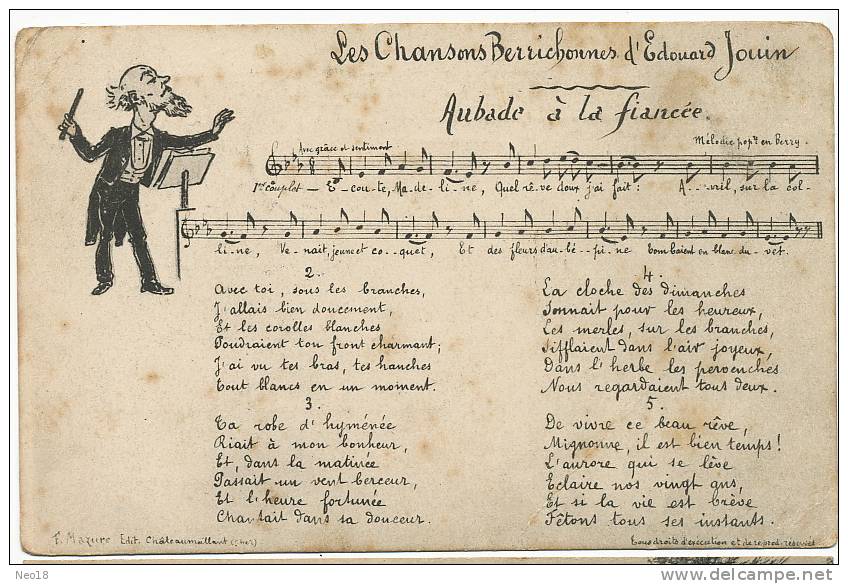 Les Chansons Berrichonnes d'Edouard Jouin
Aubade à la fiancée.
Avec grâce et sentiment
Mélodie pop.re en Berry.
1er couplet — E-cou-te, Ma-de-li-ne, Quel rê-ve doux j'ai fait : A---vril, sur la col-
li-ne, Ve-nait, jeune et co--quet, Et des fleurs d'au-bé--pi-ne Tom-baient en blanc du-vet.
2.
Avec toi, sous les branches,
J'allais bien doucement,
Et les corolles blanches
Poudraient ton front charmant;
J'ai vu tes bras, tes hanches
Tout blancs en un moment.
3.
Ta robe d'hyménée
Riait à mon bonheur,
Et, dans la matinée
Passait un vent berceur,
Et l'heure fortunée
Chantait dans sa douceur.
4.
La cloche des dimanches
Sonnait pour les heureux,
Les merles, sur les branches,
Sifflaient dans l'air joyeux,
Dans l'herbe les pervenches
Nous regardaient tous deux.
5.
De vivre ce beau rêve,
Mignonne, il est bien temps!
L'aurore qui se lève
Eclaire nos vingt ans,
Et si la vie est brève
Fêtons tous ses instants.
F. Mazure Edit. Châteaumeillant (Cher)
Tous droits d'exécution et de reprod. réservés
Neo18
delcampe.net